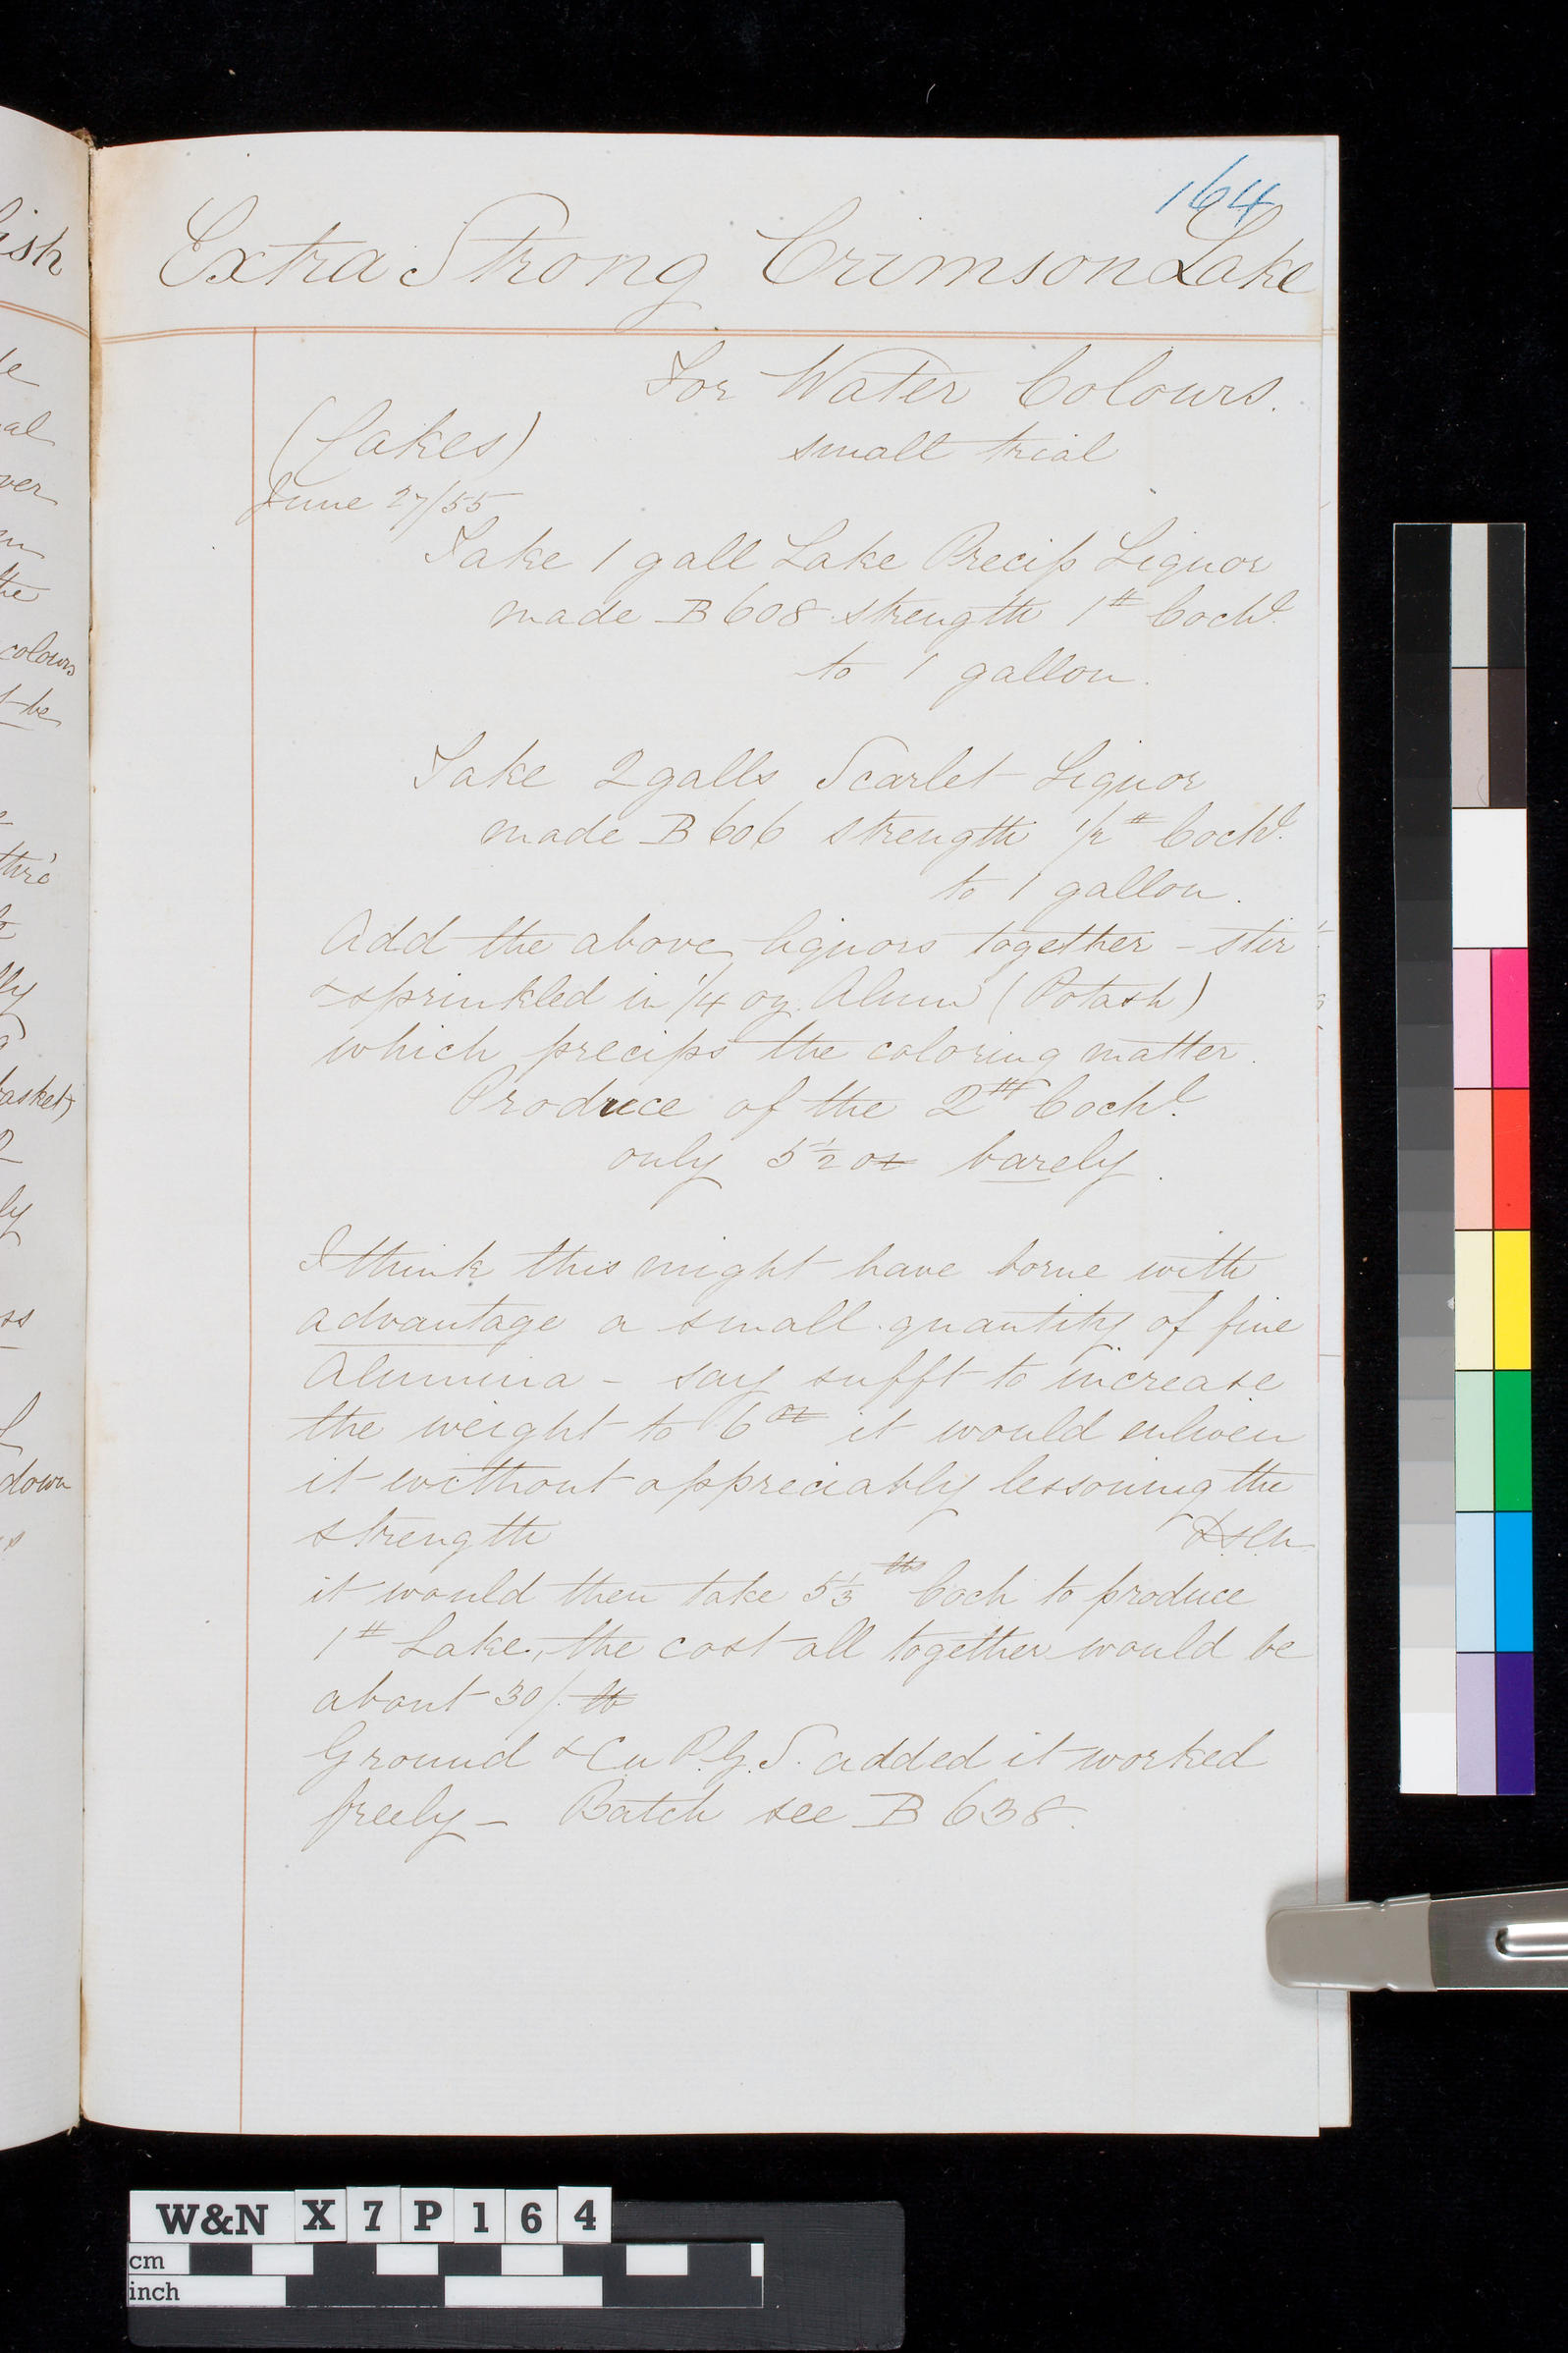 164
Extra Strong Crimson Lake
For Water Colours.
(Lakes) small trial
June 27/55
Take 1 gall Lake Precip Liquor
made B 608 strength 1 # Cochl
to 1 gallon.
Take 2 galls Scarlet Liquor
made B 606 strength 1/2 # Cochl.
to 1 gallon.
Add the above liquors together - stir
& sprinkled in 1/4 oz. Alum (Potash)
which precips the coloring matter.
Produce of the 2 # Cochl.
only 5 1/2 oz barely.
I think this might have borne with
advantage a small quantity of fine
Alumina - say sufft to increase
the weight to 6 oz it would enliven
it without appreciably lessoning the
strength
it would then take 5 1/3 lbs Coch to produce
1 # Lake, the cost all together would be
about 30/. lb
Ground & Cu P.G.S. added it worked
freely - Batch see B 638.
ish
le
al
ver
the
colours
t be
thro
lly
basket)
ly
ss
down
W&N X 7 P 1 6 4
cm
inch